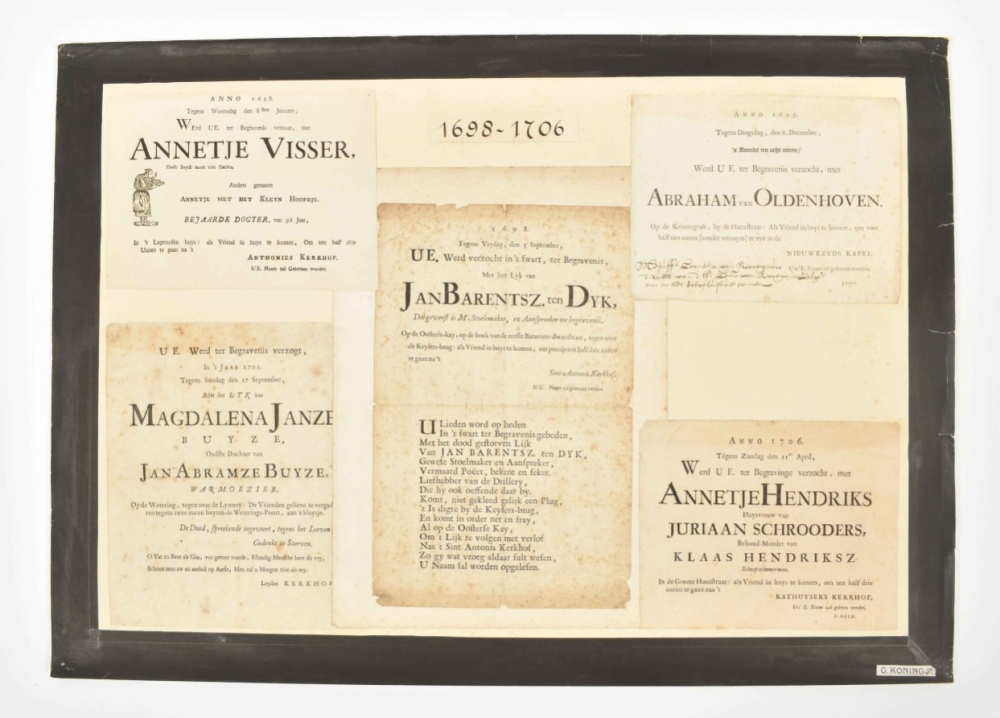 ANNO 1698.
Tegens Woensdag den 8sten January,
Werd UE. ter Begravenis verzogt, met
ANNETJE VISSER,
Anders genaamt
ANNETJE MET HET KLEYN HOOFDJE.
BEJAARDE DOGTER, van 98 Jaar,
In 't Leprosen huys: als Vriend in huys te komen, Om ten half drie
Uuren te gaan na 't
ANTHONIES KERKHOF.
U E. Naam zal Gelesen worden.
1698-1706
Tegens Dingsdag, den 8. December,
's Avonds ten acht uuren/
Werd U E. ter Begravenis verzocht, met
ABRAHAM van OLDENHOVEN.
Op de Keizersgraft, by de Hartestraat: Als Vriend in huys te komen,
half tien uuren (zonder vertoeven) te zyn in de
NIEUWEZYDS KAPEL.
Uw' E. Naam zal gelesen werden.
1698.
Tegens Vrydag, den 5 September,
UE. Werd verzocht in't swart, ter Begravenis,
Met het Lyk van
JAN BARENTSZ. ten DYK,
Die geweest is Mr. Stoelemaker, en Aanspreeker ter begravenis.
Op de Oosterse-kay, op de hoek van de eerste Bataviers-dwarsstraat, tegen over
de Keysers-brug: als Vriend in huys te komen, om precys ten half drie uuren
te gaan na't
Sint Antonis Kerkhof.
U E. Naam zal gelesen werden.
U Lieden word op heden
In 't swart ter Begravenis gebeden,
Met het dood gestorven Lijk
Van JAN BARENTSZ. ten DYK,
Gewese Stoelmaker en Aanspreker,
Vermaard Poëet, bekent en seker.
Liefhebber van de Drillery,
Die hy ook oeffende daar by.
Komt, niet gekleed gelijk een Plug,
't Is digte by de Keysers-brug,
En komt in order net en fray,
Al op de Oosterse Kay,
Om 't Lijk te volgen met verlof
Naa 't Sint Antonis Kerkhof,
Zo gy wat vroeg aldaar sult wesen,
U Naam sal worden opgelesen.
UE. Werd ter Begravenis verzogt,
In 't JAAR 1702.
Tegens Sondag den 17 September,
Met het LYK van
MAGDALENA JANZE
BUYZE,
Oudste Dochter van
JAN ABRAMZE BUYZE.
WARMOEZIER,
Op de Wetering, tegen over de Lymery: De Vrienden gelieve te
ten tegens twee uuren buyten de Weterings-Poort, aan 't sluysje.
De Dood, spreekende ingevoert, tegens het Leeven
Gedenkt te Sterven.
Leydse KERKHOF
ANNO 1706.
Tegens Zondag den 11en April,
Werd U E. ter Begravinge verzocht, met
ANNETJE HENDRIKS
Huysvrouw van
JURIAAN SCHROODERS,
Behoud-Moeder van
KLAAS HENDRIKSZ
Scheepstimmerman.
In de Groote Houtstraat: als Vriend in huys te komen, om ten half drie
uuren te gaan naa't
KATHUYSERS KERKHOF,
Uw' E. Naam zal gelesen werden.
G. KONING Jr.